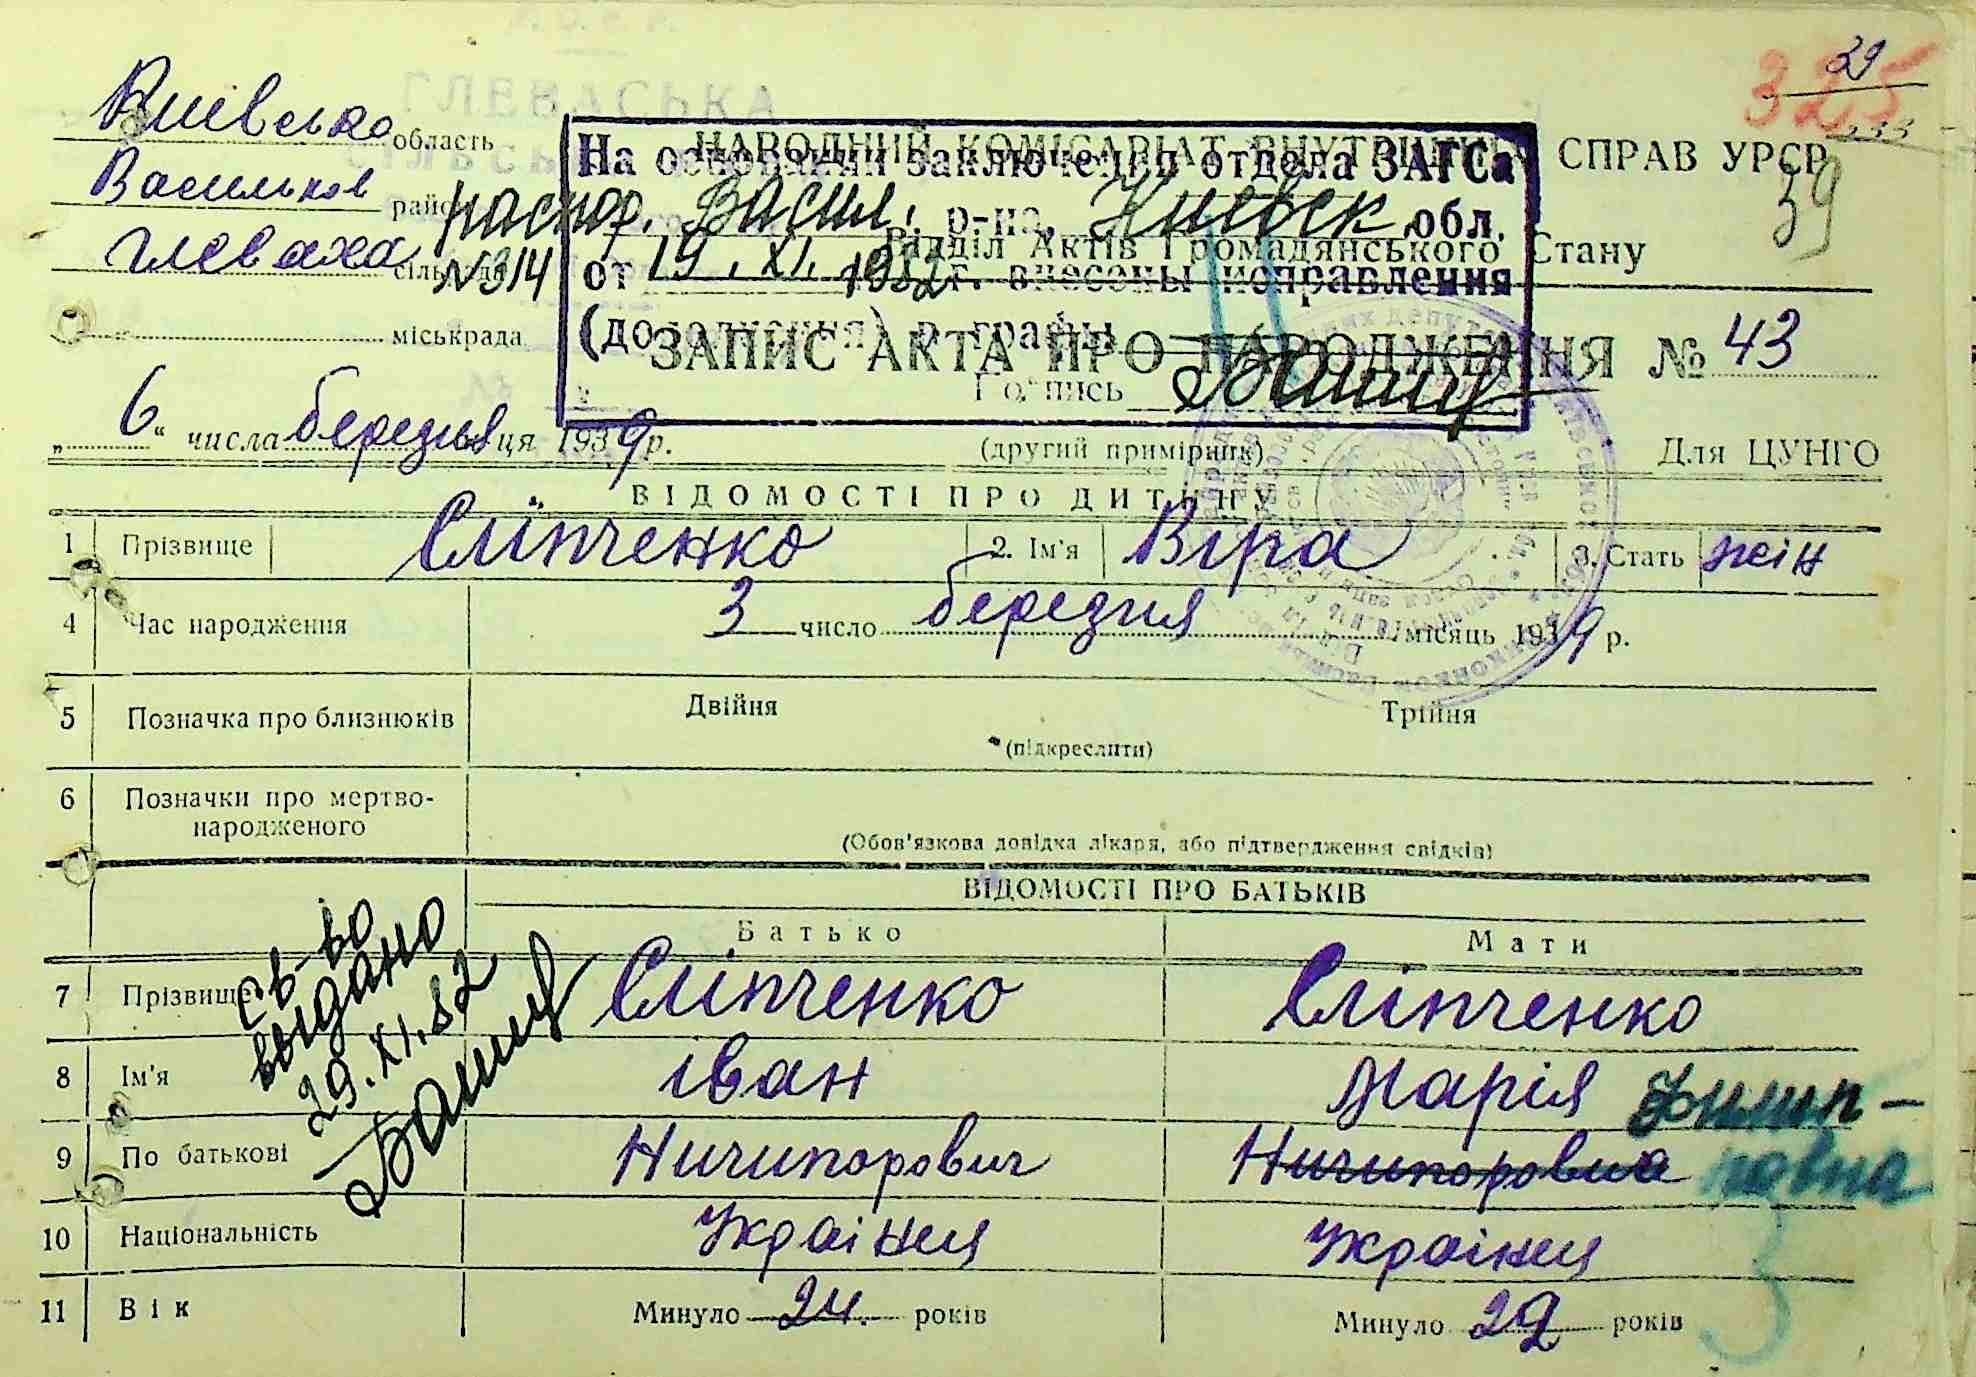 29
325
Київсько область
НАРОДНИЙ КОМІСАРІАТ ВНУТРІШНІХ СПРАВ УРСР
39
Васильков район
Глеваха сільрада
Відділ Актів Громадянського Стану
міськрада
На основании заключения отдела ЗАГСа
распор. Васил. р-на, Киевск обл.
№314 от 19. XI. 1982 г. внесены исправления
(дополнения) в графы
Подпись
ЗАПИС АКТА ПРО НАРОДЖЕННЯ № 43
„6“ числа березня місяця 1939 р.
(другий примірник)
Для ЦУНГО
ВІДОМОСТІ ПРО ДИТИНУ
1 Прізвище Сліпченко 2. Ім'я Віра 3. Стать жін
4 Час народження 3 число березня місяць 1939 р.
5 Позначка про близнюків Двійня Трійня
(підкреслити)
6 Позначки про мертво-
народженого
(Обов'язкова довідка лікаря, або підтвердження свідків)
ВІДОМОСТІ ПРО БАТЬКІВ
Батько Мати
7 Прізвище Сліпченко Сліпченко
8 Ім'я Іван Марія Филип-
9 По батькові Ничипорович Ничипоровна повна
10 Національність Українця Українця
11 Вік Минуло 24. років Минуло 29 років
св-во
выдано
29.XI.82